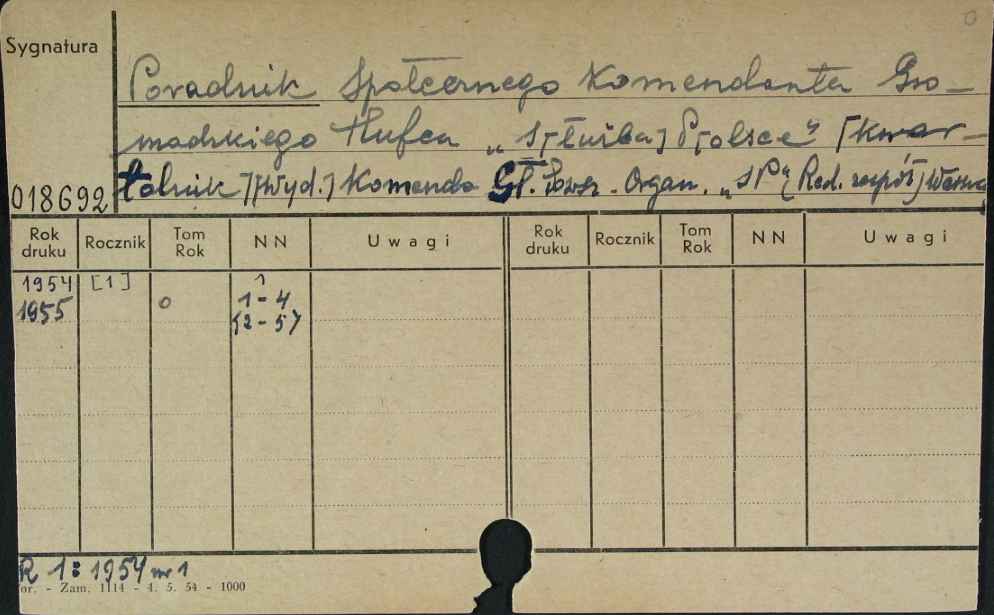 Sygnatura
Poradnik Społecznego Komendanta Gro-
madzkiego Hufca „S[łużba] P[olsce]" [kwar-
talnik][Wyd.] Komenda Gł. Powsz. Organ. „SP" [Red. zespół] Warsz
018692
Rok druku Rocznik Tom Rok NN Uwagi Rok druku Rocznik Tom Rok NN Uwagi
1954 [1] 1
1955 0 1-4
{2-5}
R 1: 1954 nr 1
or. - Zam. 1114 - 4. 5. 54 - 1000